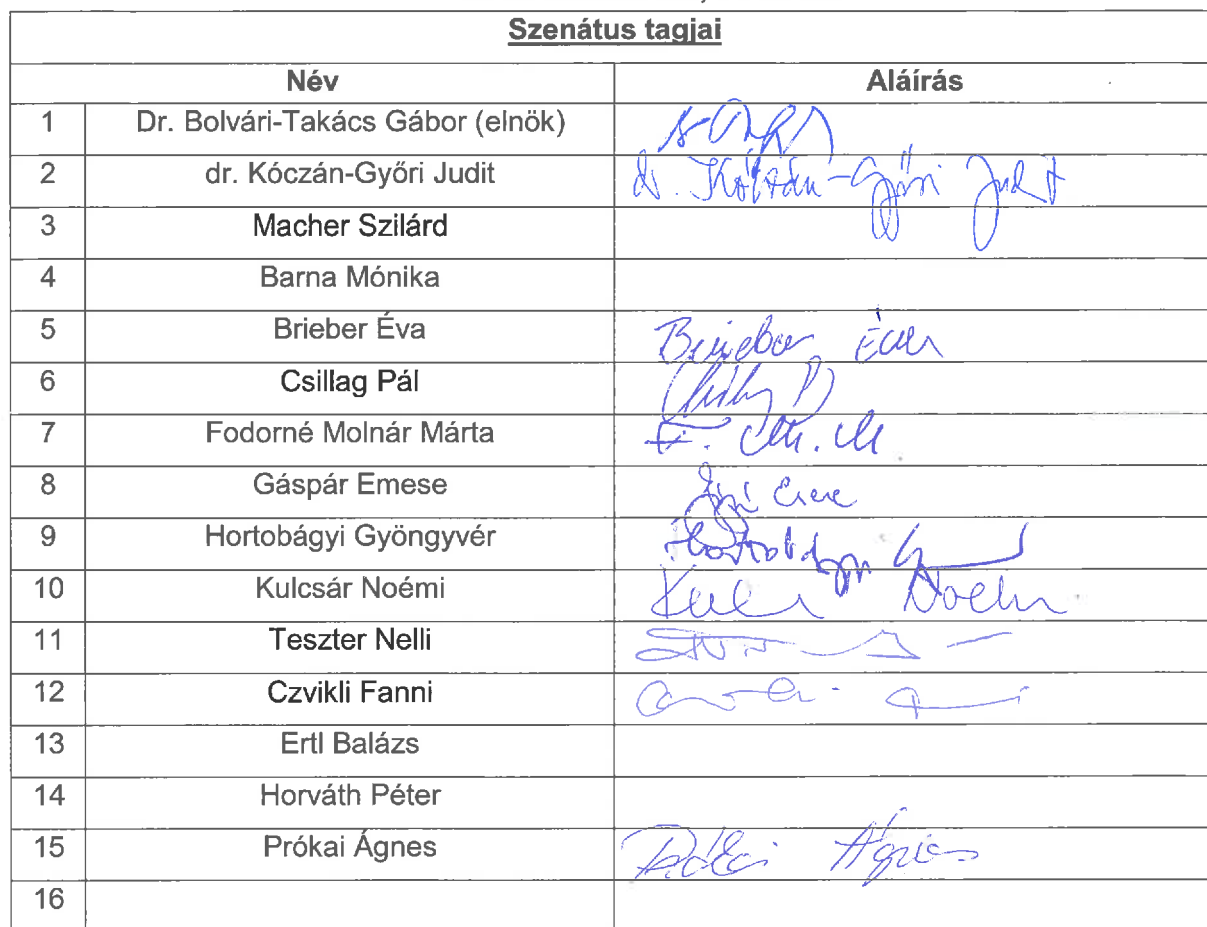 Szenátus tagjai
Név Aláírás
1 Dr. Bolvári-Takács Gábor (elnök)
2 dr. Kóczán-Győri Judit dr. Kóczán-Győri Judit
3 Macher Szilárd
4 Barna Mónika
5 Brieber Éva Brieber Éva
6 Csillag Pál
7 Fodorné Molnár Márta F. M. M
8 Gáspár Emese
9 Hortobágyi Gyöngyvér Hortobágyi
10 Kulcsár Noémi Noémi
11 Teszter Nelli
12 Czvikli Fanni
13 Ertl Balázs
14 Horváth Péter
15 Prókai Ágnes Prókai Ágnes
16